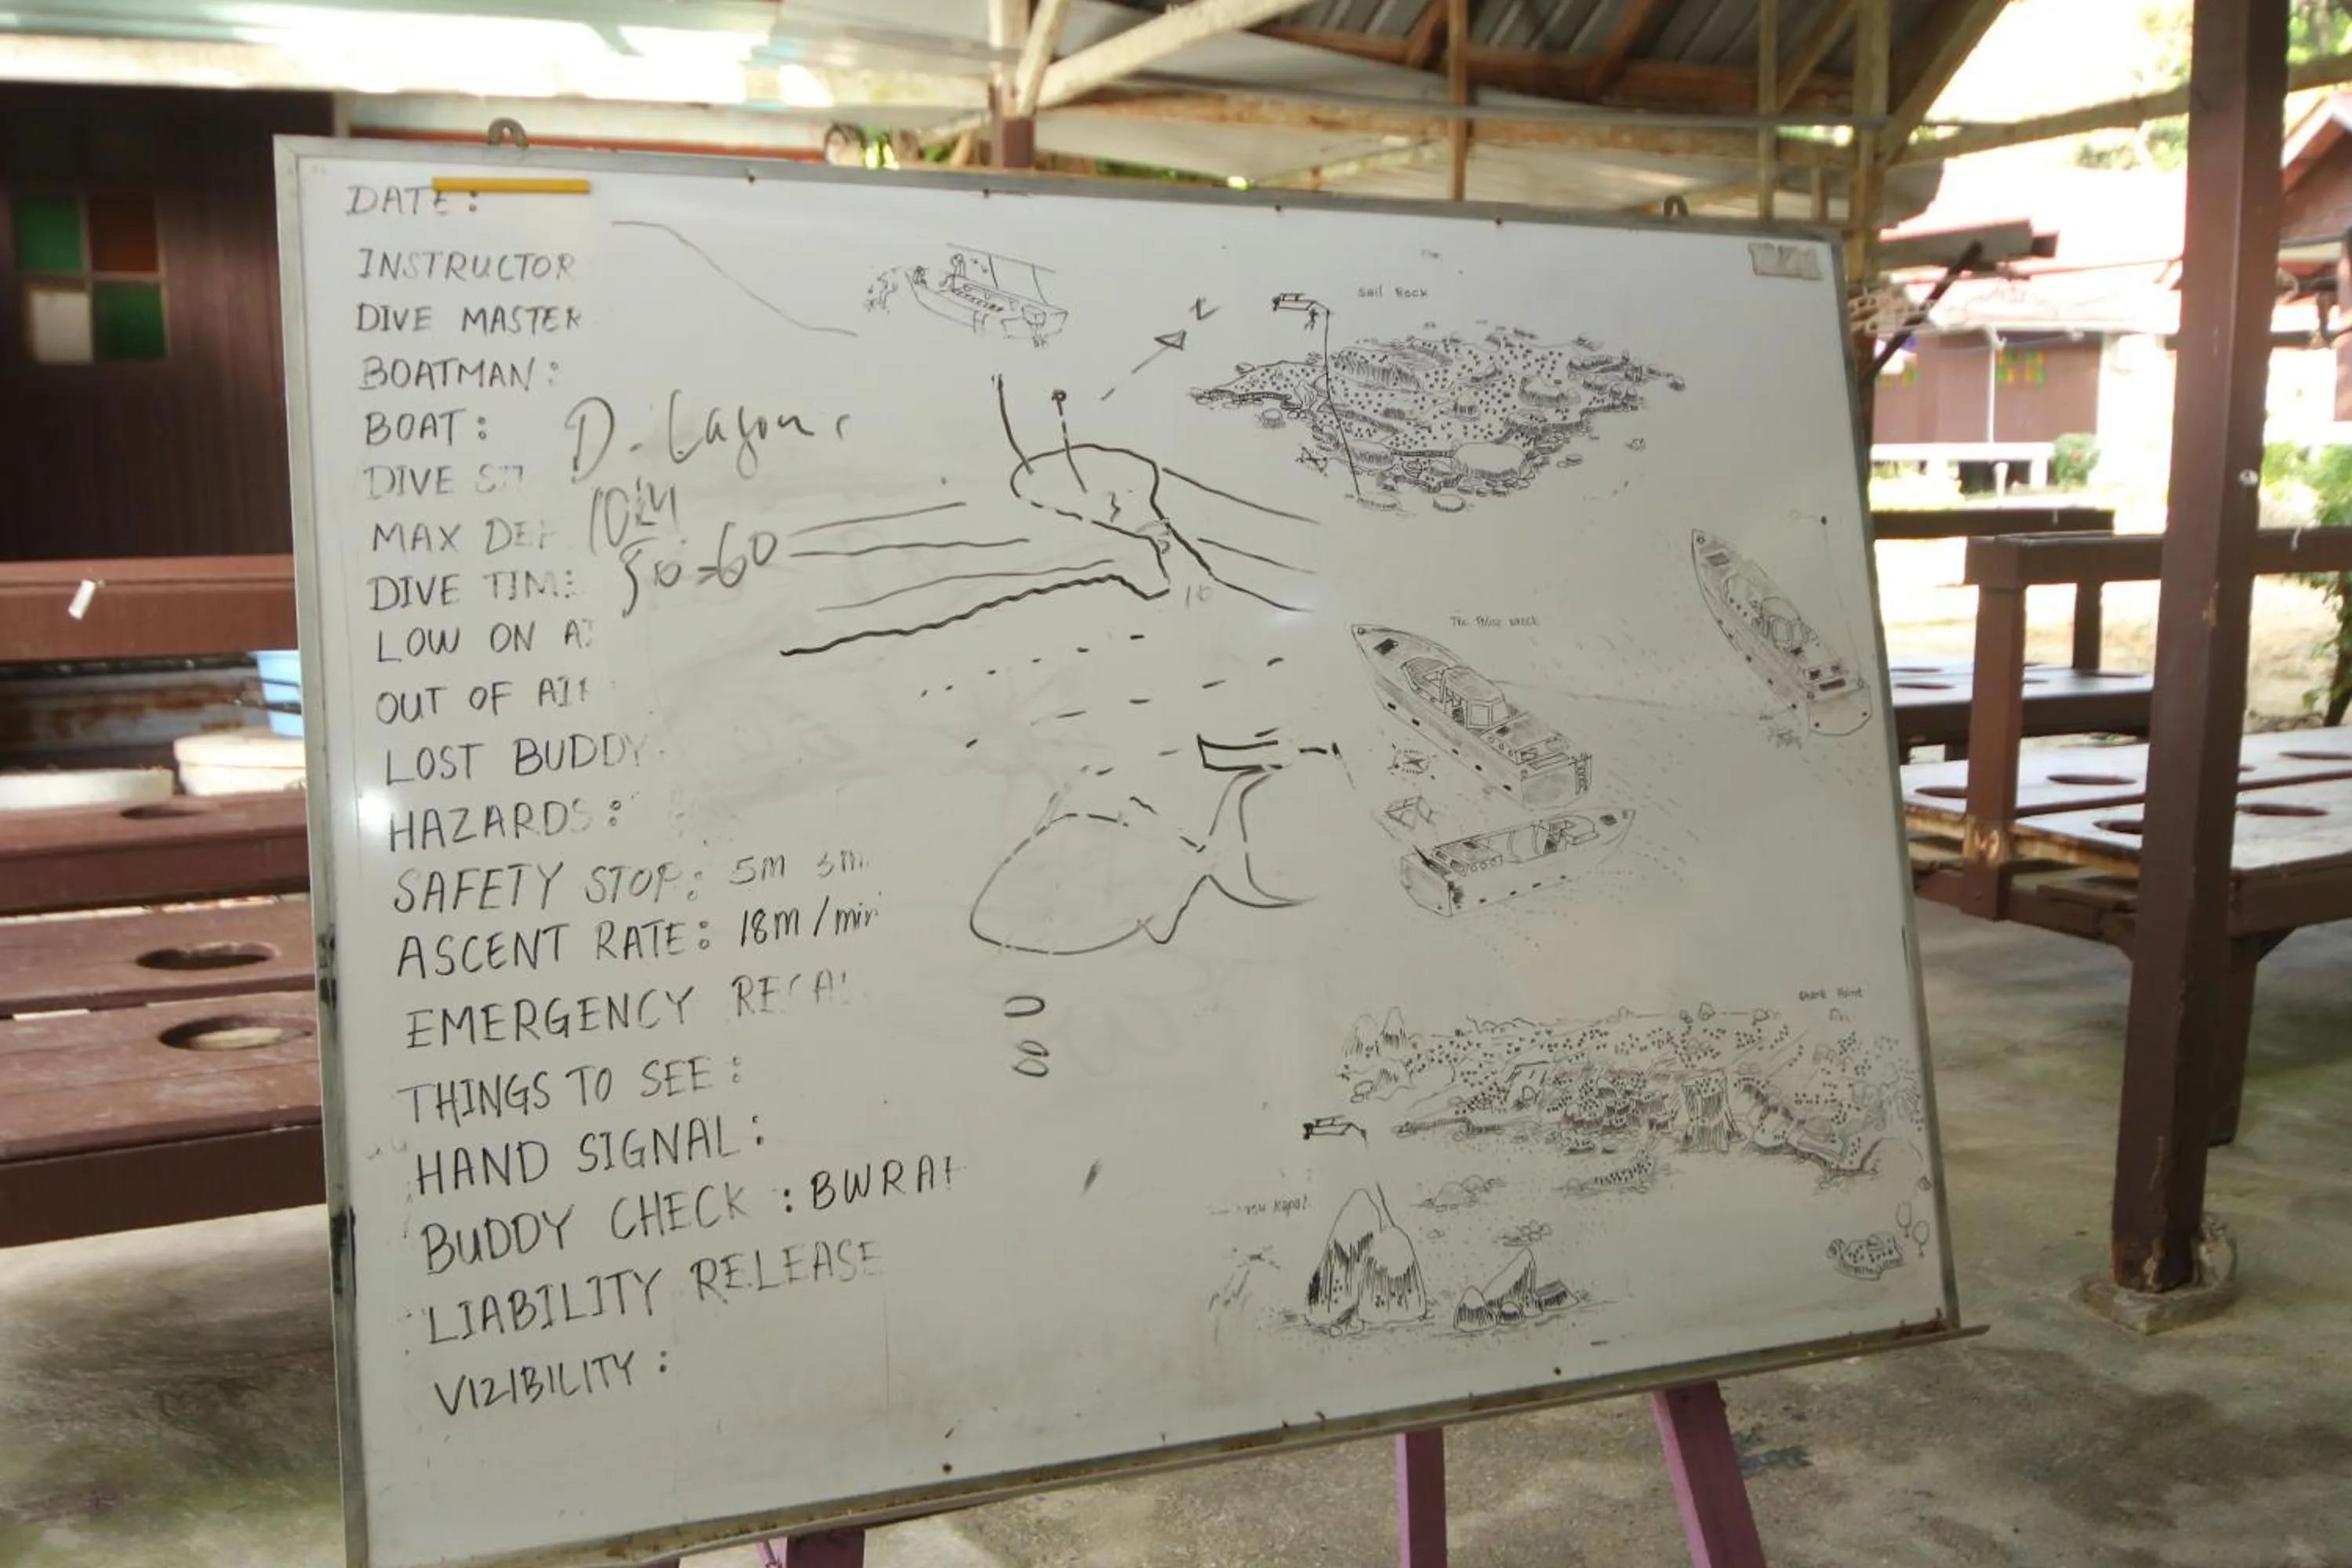 DATE:
INSTRUCTOR
DIVE MASTER
BOATMAN:
BOAT:
D. Lagoon
DIVE
MAX
DIVE TIME
LOW ON
OUT OF AIR
LOST BUDDY
HAZARDS:
SAFETY STOP: 5m 3m
ASCENT RATE: 18m/min
EMERGENCY
THINGS TO SEE:
HAND SIGNAL:
BUDDY CHECK : BWRAF
LIABILITY RELEASE
VIZIBILITY :
=60
Sail Rock
The Police Wreck
Shark Point